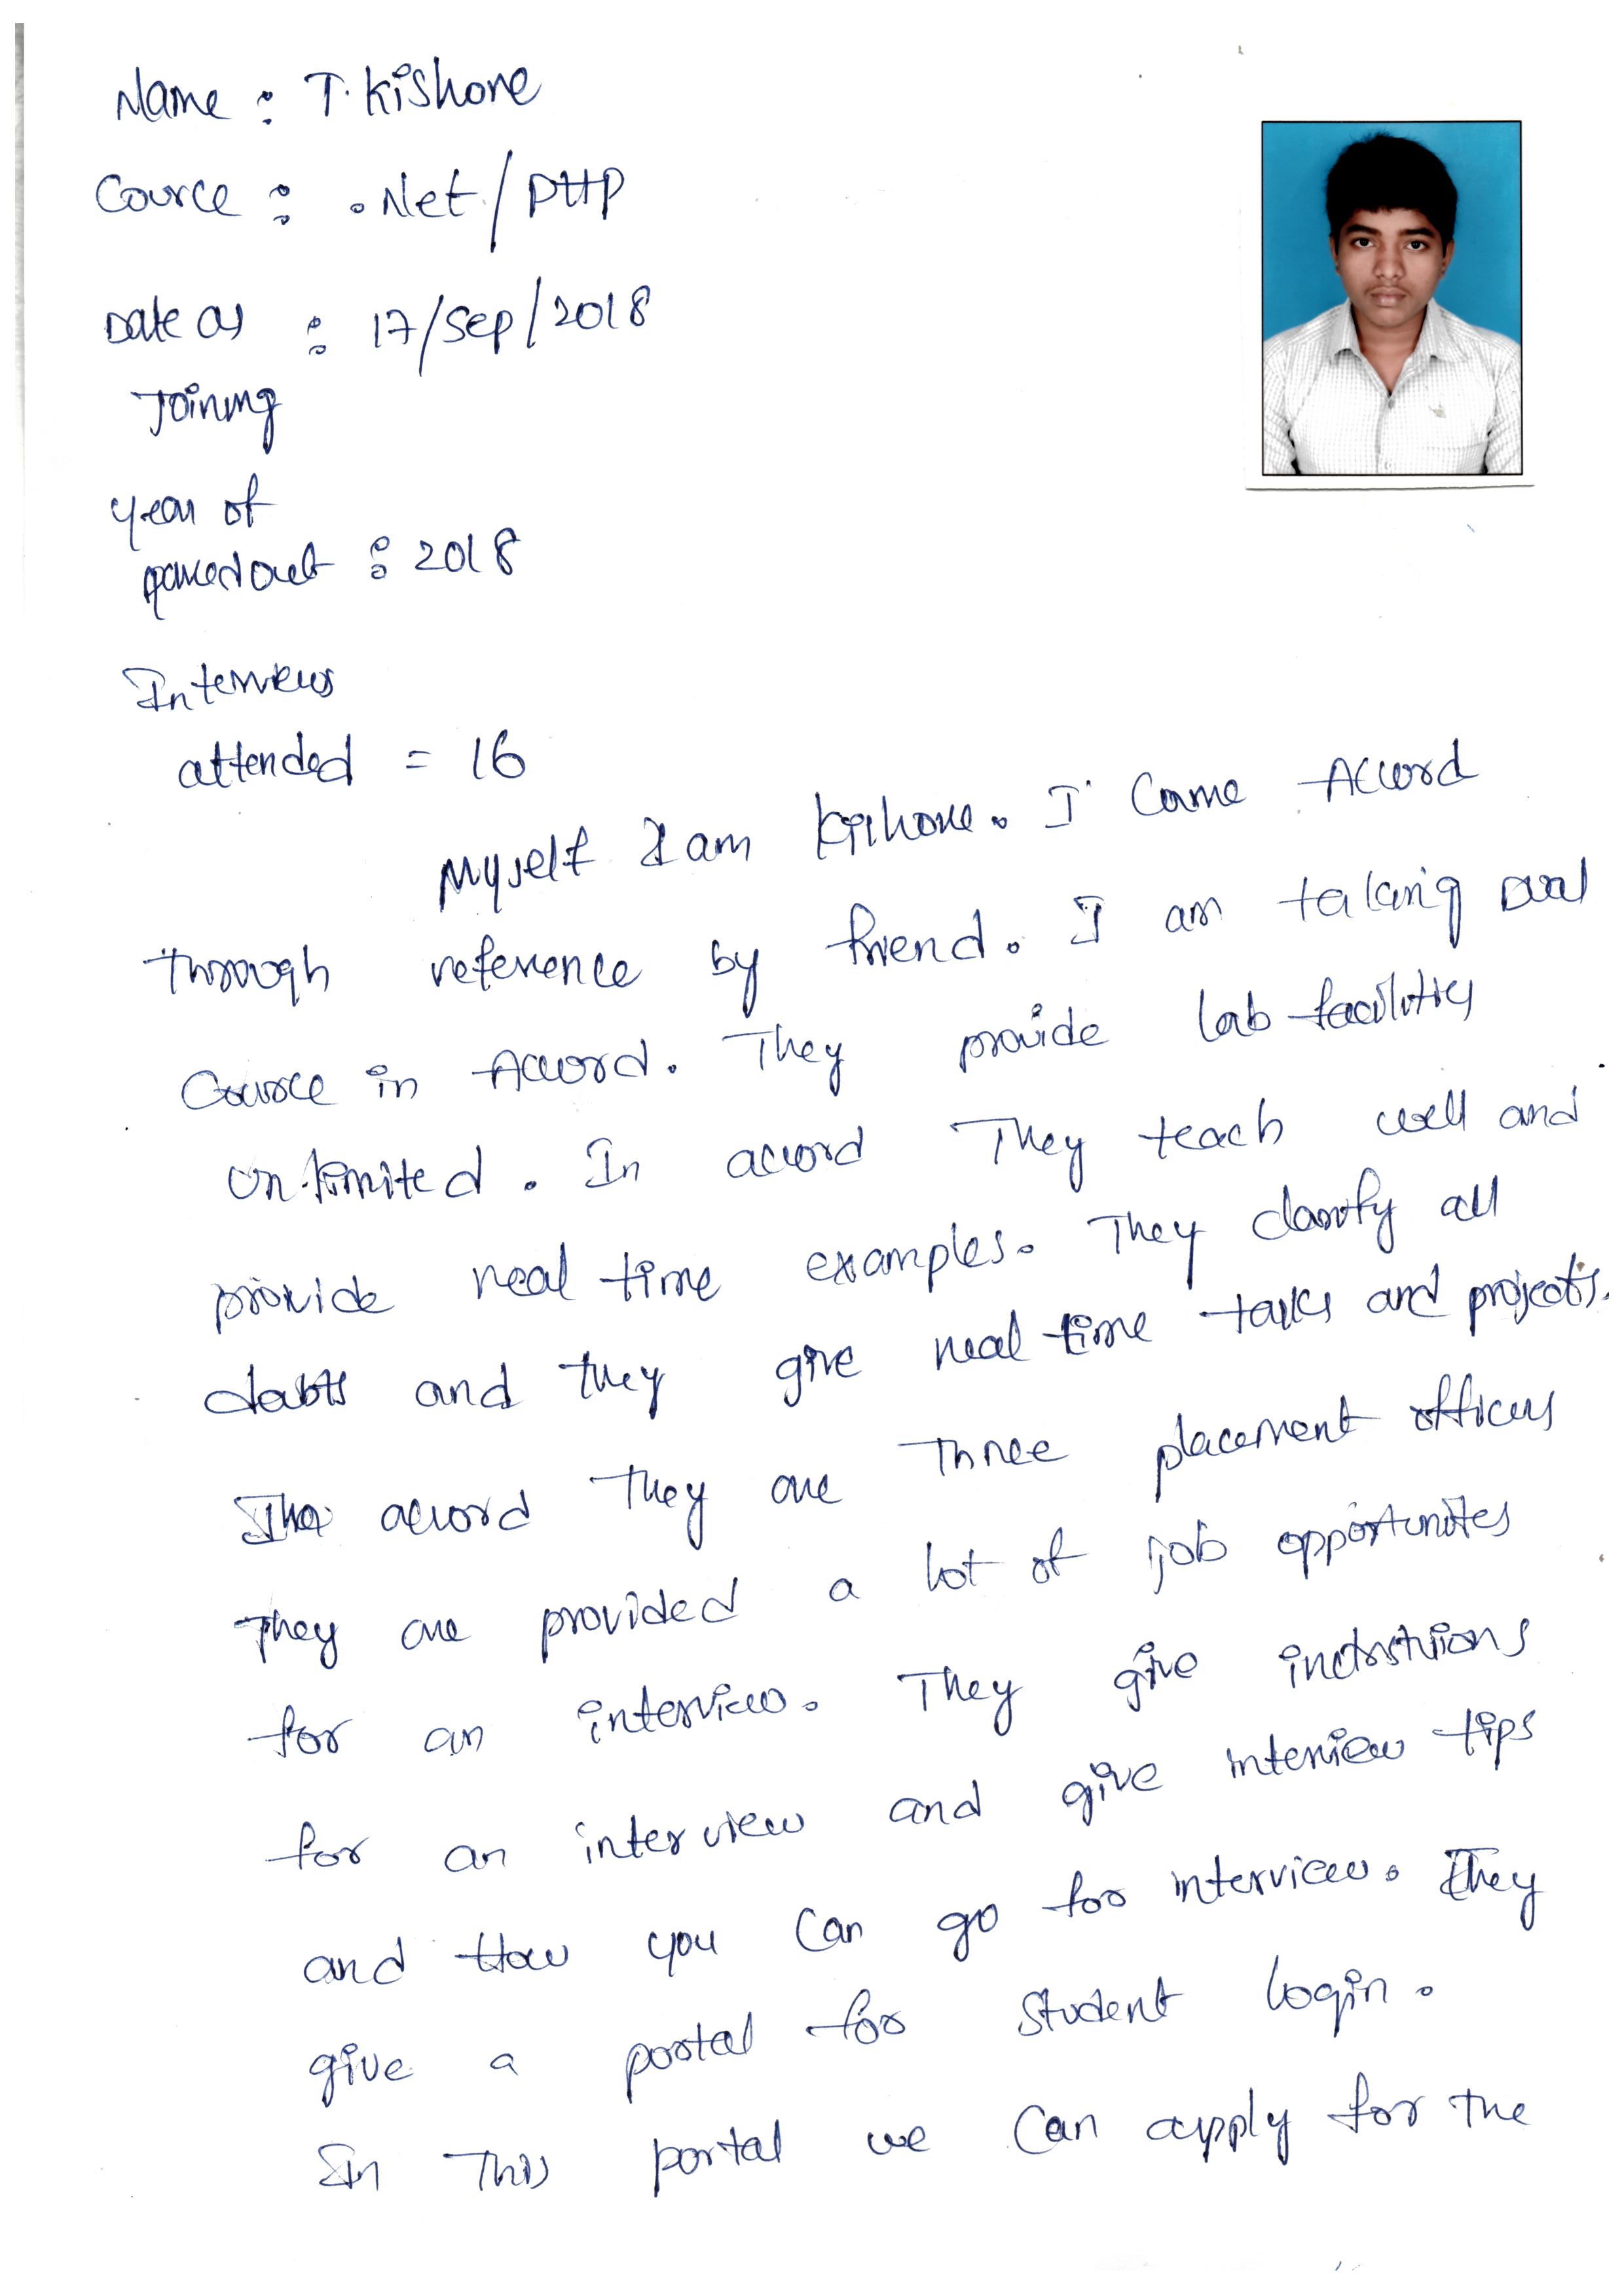 Name : T. Kishore
Cource : .Net/PHP
Date of : 17/Sep/2018
Joining
year of
passedout : 2018
Interviews
attended = 16
Myself I am Kishore. I came Accord
through reference by friend. I am taking dual
Cource in Accord. They provide lab facilities
un-limited. In accord They teach well and
provide real time examples. They clarify all
doubts and they give real time tasks and projects.
The accord They are Three placement officers
They are provided a lot of job opportunites
for an interview. They give
for an interview and give interview tips
and How you can go for interview. They
give a portal for student login.
In This portal we can apply for the